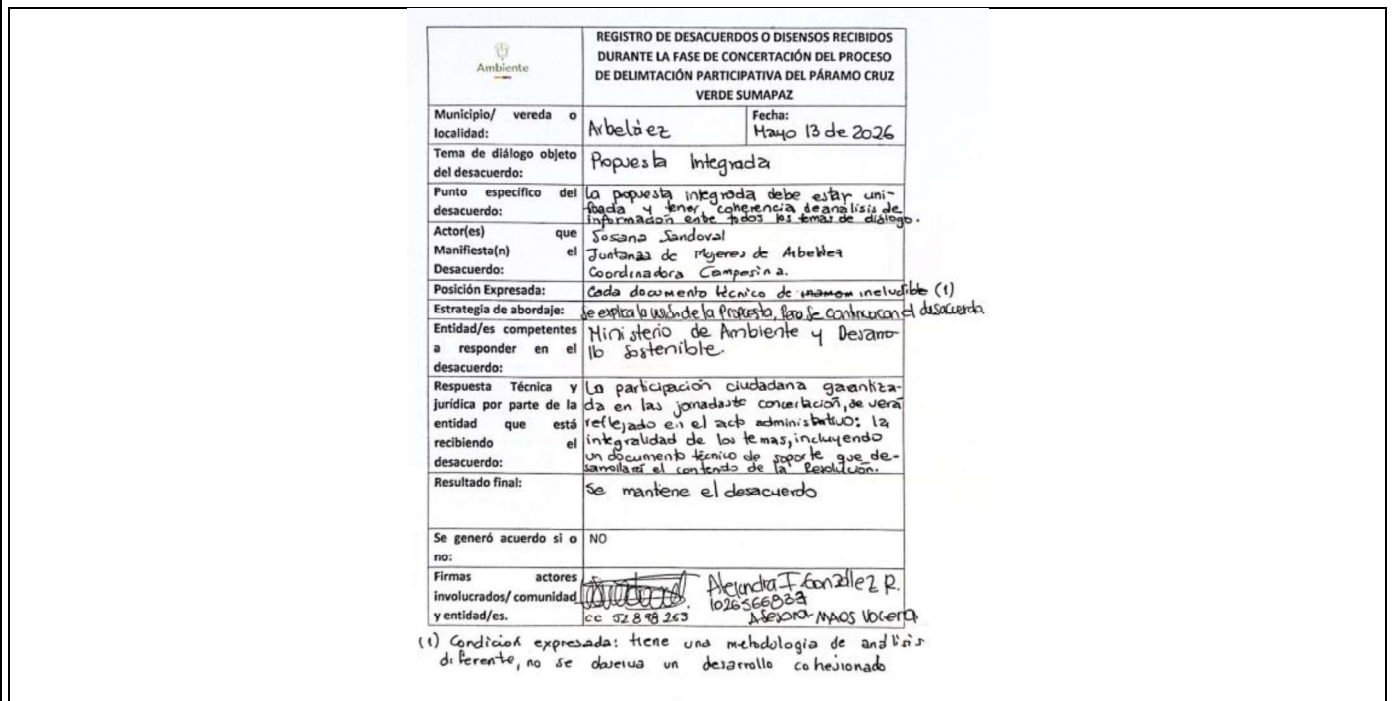 Ambiente
REGISTRO DE DESACUERDOS O DISENSOS RECIBIDOS
DURANTE LA FASE DE CONCERTACIÓN DEL PROCESO
DE DELIMTACIÓN PARTICIPATIVA DEL PÁRAMO CRUZ
VERDE SUMAPAZ
Municipio/ vereda o
localidad:
Arbeláez
Fecha:
Mayo 13 de 2026
Tema de diálogo objeto
del desacuerdo:
Propuesta Integrada
Punto específico del
desacuerdo:
La propuesta integrada debe estar uni-
ficada y tener coherencia de análisis de
información entre todos los temas de diálogo.
Actor(es) que
Manifiesta(n) el
Desacuerdo:
Sandoval
Juntanza de Mujeres de Arbeláez
Coordinadora Campesina.
Posición Expresada:
Cada documento técnico de ineludible (1)
Estrategia de abordaje:
Se explica la visión de la Propuesta, pero se continua con el desacuerdo.
Entidad/es competentes
a responder en el
desacuerdo:
Ministerio de Ambiente y Desarro-
llo Sostenible.
Respuesta Técnica y
jurídica por parte de la
entidad que está
recibiendo el
desacuerdo:
La participación ciudadana garantiza-
da en las jornadas de concertación, se verá
reflejado en el acto administrativo: la
integralidad de los temas, incluyendo
un documento técnico de soporte que de-
sarrollará el contenido de la Resolución.
Resultado final:
Se mantiene el desacuerdo
Se generó acuerdo si o
no:
NO
Firmas actores
involucrados/ comunidad
y entidad/es.
Alejandra I. González R.
cc 52898263
Asesora MADS Vocera
(1) Condición expresada: tiene una metodologia de análisis
diferente, no se observa un desarrollo cohesionado